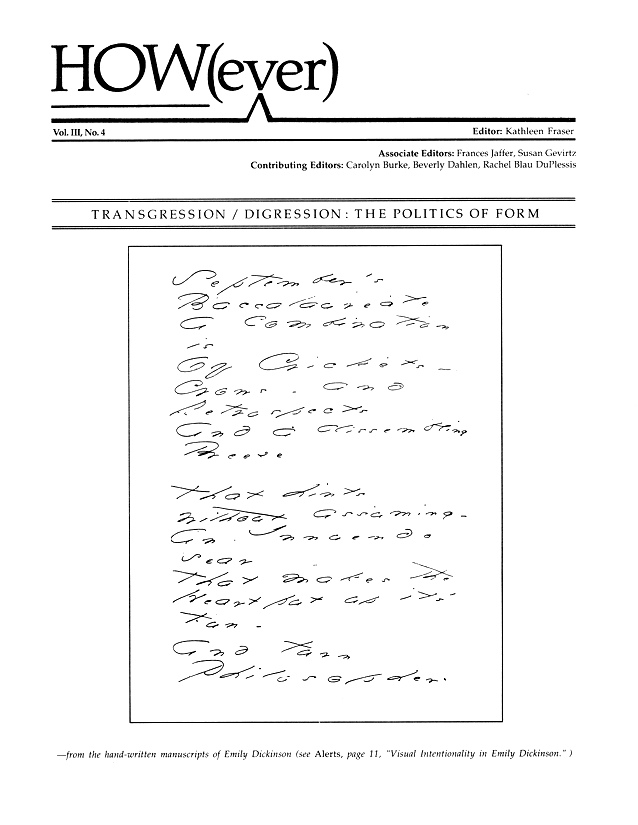 HOW(ever)
Vol. III, No. 4
Editor: Kathleen Fraser
Associate Editors: Frances Jaffer, Susan Gevirtz
Contributing Editors: Carolyn Burke, Beverly Dahlen, Rachel Blau DuPlessis
TRANSGRESSION / DIGRESSION: THE POLITICS OF FORM
September's
Baccalaureate
A Combination
is
Of Crickets -
Crows - And
Retrospects
And a dissembling
Breeze
That hints
without assuming -
An Innuendo
sear
That makes the
Heart put up its'
Fun -
And turn
Philosopher.
—from the hand-written manuscripts of Emily Dickinson (see Alerts, page 11, "Visual Intentionality in Emily Dickinson." )